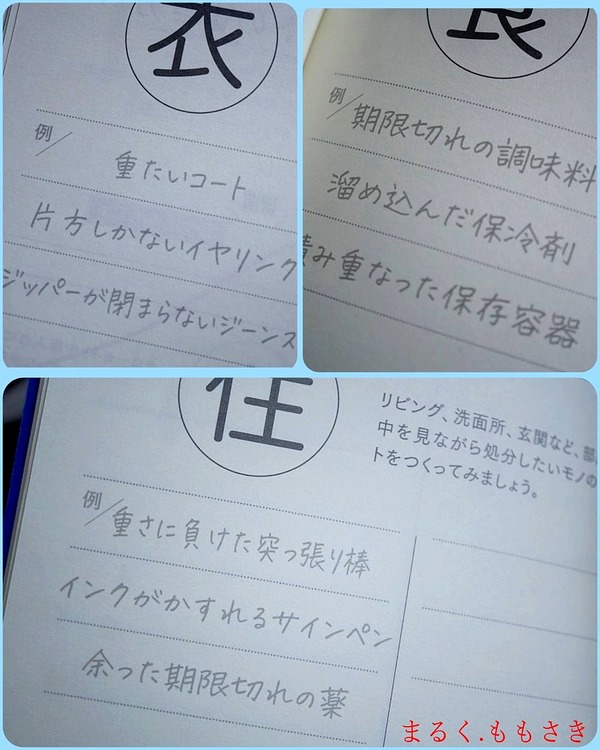 衣
例/
重たいコート
片方しかないイヤリング
ジッパーが閉まらないジーンズ
食
例/
期限切れの調味料
溜め込んだ保冷剤
積み重なった保存容器
住
リビング、洗面所、玄関など、部
中を見ながら処分したいモノの
トをつくってみましょう。
例/
重さに負けた突っ張り棒
インクがかすれるサインペン
余った期限切れの薬
まるく.ももさき